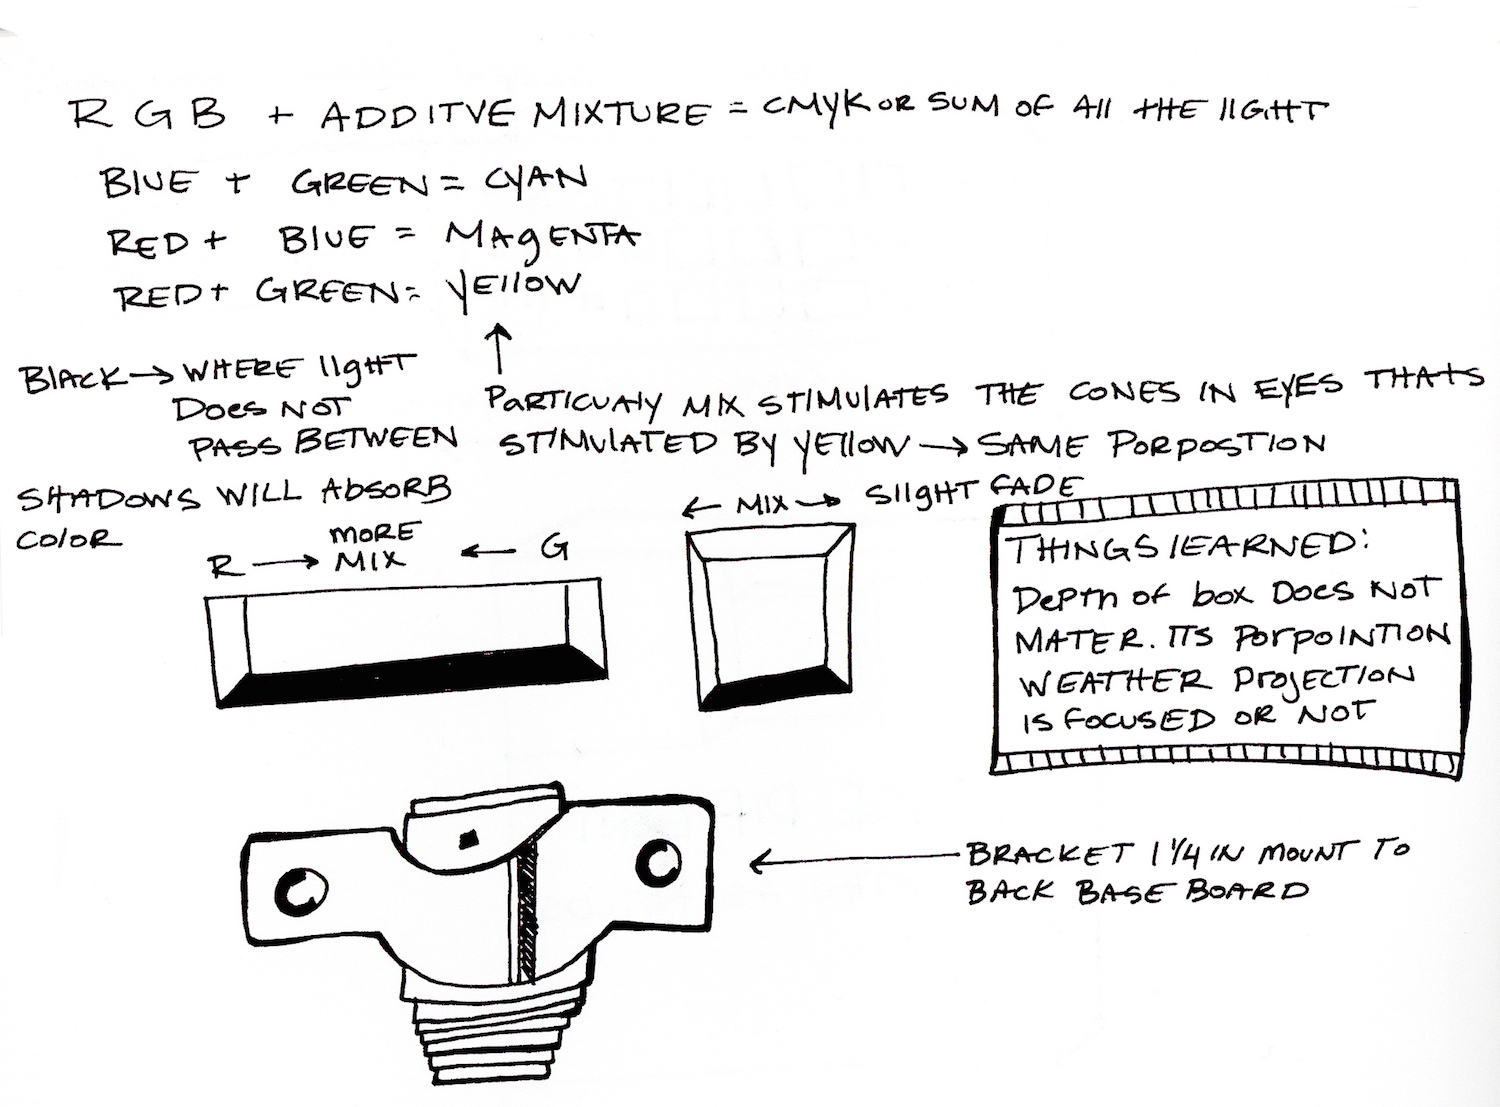 RGB + ADDITVE MIXTURE = CMYK OR SUM OF All THE lIGHT
BlUE + GREEN = CYAN
RED + BlUE = MAgENTA
RED + GREEN = YEllOW
BlACK → WHERE lIgHT
DOES NOT
PASS BETWEEN
SHADOWS WILL AbSORB
COlOR
PARTICUAlY MIX STIMULATES THE CONES IN EYES THATS
STIMULATED BY YEllOW → SAME PORPOSTION
SlIgHT FADE
R → MORE
MIX ← G
← MIX →
THINGS lEARNED:
DEPTH OF bOX DOES NOT
MATER. ITS PORPOINTION
WEATHER PROJECTION
IS FOCUSED OR NOT
BRACKET 1 1/4 IN MOUNT TO
BACK BASE BOARD